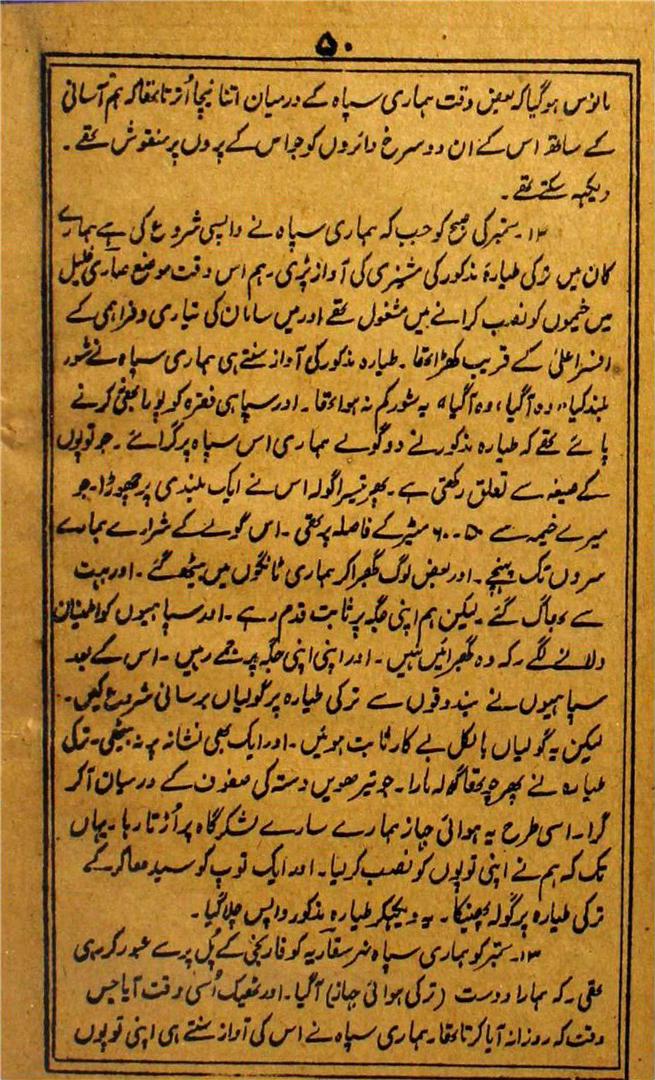 ۵۰
مانوس ہوگیا کہ بعض وقت ہماری سپاہ کے درمیان اتنا نیچا اُتر تا تھا کہ ہم آسانی
کے ساتھ اس کے ان دو سرخ دائروں کو جو اس کے پروں پر منقوش تھے ۔
دیکھہ سکتے تھے ۔
۱۳۔ ستمبر کی صبح کو جب کہ ہماری سپاہ نے واپسی شروع کی ہے ہمارے
کان میں ترکی طیارہ مذکور کی مشنری کی آواز پڑی ۔ ہم اس وقت موضع
میں خیموں کو نصب کرانے میں مشغول تھے اور میں سامان کی تیاری و فراہمی کے
افسر اعلیٰ کے قریب کھڑا تھا ۔ طیارہ مذکور کی آواز سنتے ہی ہماری سپاہ نے شور
بلند کیا " وہ آگیا ، وہ آگیا " یہ شور کم نہ ہوا تھا ۔ اور سپاہی فقرہ کو پورا بھی نہ کرنے
پائے تھے کہ طیارہ مذکور نے دو گولے ہماری اس سپاہ پر گرائے ۔ جو توپوں
کے صیغہ سے تعلق رکھتی ہے ۔ پھر تیسرا گولہ اس نے ایک بلندی پر چھوڑا ۔ جو
میرے خیمہ سے ۵۰ ۔۔ ۶۰ میٹر کے فاصلہ پر تھی ۔ اس گولے کے شرارے ہمارے
سروں تک پہنچے ۔ اور بعض لوگ گھبرا کر ہماری ٹانگوں میں بیٹھ گئے ۔ اور بہت
سے بھاگ گئے ۔ لیکن ہم اپنی جگہ پر ثابت قدم رہے ۔ اور سپاہیوں کو اطمینان
دلانے لگے ۔ کہ وہ گھبرائیں نہیں ۔ اور اپنی اپنی جگہ پر جمے رہیں ۔ اس کے بعد
سپاہیوں نے بندوقوں سے ترکی طیارہ پر گولیاں برسانی شروع کیں ۔
لیکن یہ گولیاں بالکل بے کار ثابت ہوئیں ۔ اور ایک بھی نشانہ پر نہ بیٹھی ۔ ترکی
طیارہ نے پھر چوتھا گولہ مارا ۔ جو تیرھویں دستہ کی صفوں کے درمیان آکر
گرا ۔ اسی طرح یہ ہوائی جہاز ہمارے سارے لشکر گاہ پر اُڑتا رہا ۔ یہاں
تک کہ ہم نے اپنی توپوں کو نصب کر لیا ۔ اور ایک توپ کو سیدھا کر کے
ترکی طیارہ پر گولہ پھینکا ۔ یہ دیکھکر طیارہ مذکور واپس چلا گیا ۔
۱۳۔ ستمبر کو ہماری سپاہ نہر سقاریہ کو کے پُل پر سے عبور کر رہی
تھی ۔ کہ ہمارا دوست (ترکی ہوائی جہاز) آگیا ۔ اور ٹھیک اُسی وقت آیا جس
وقت کہ روزانہ آیا کرتا تھا ۔ ہماری سپاہ نے اس کی آواز سنتے ہی اپنی توپوں